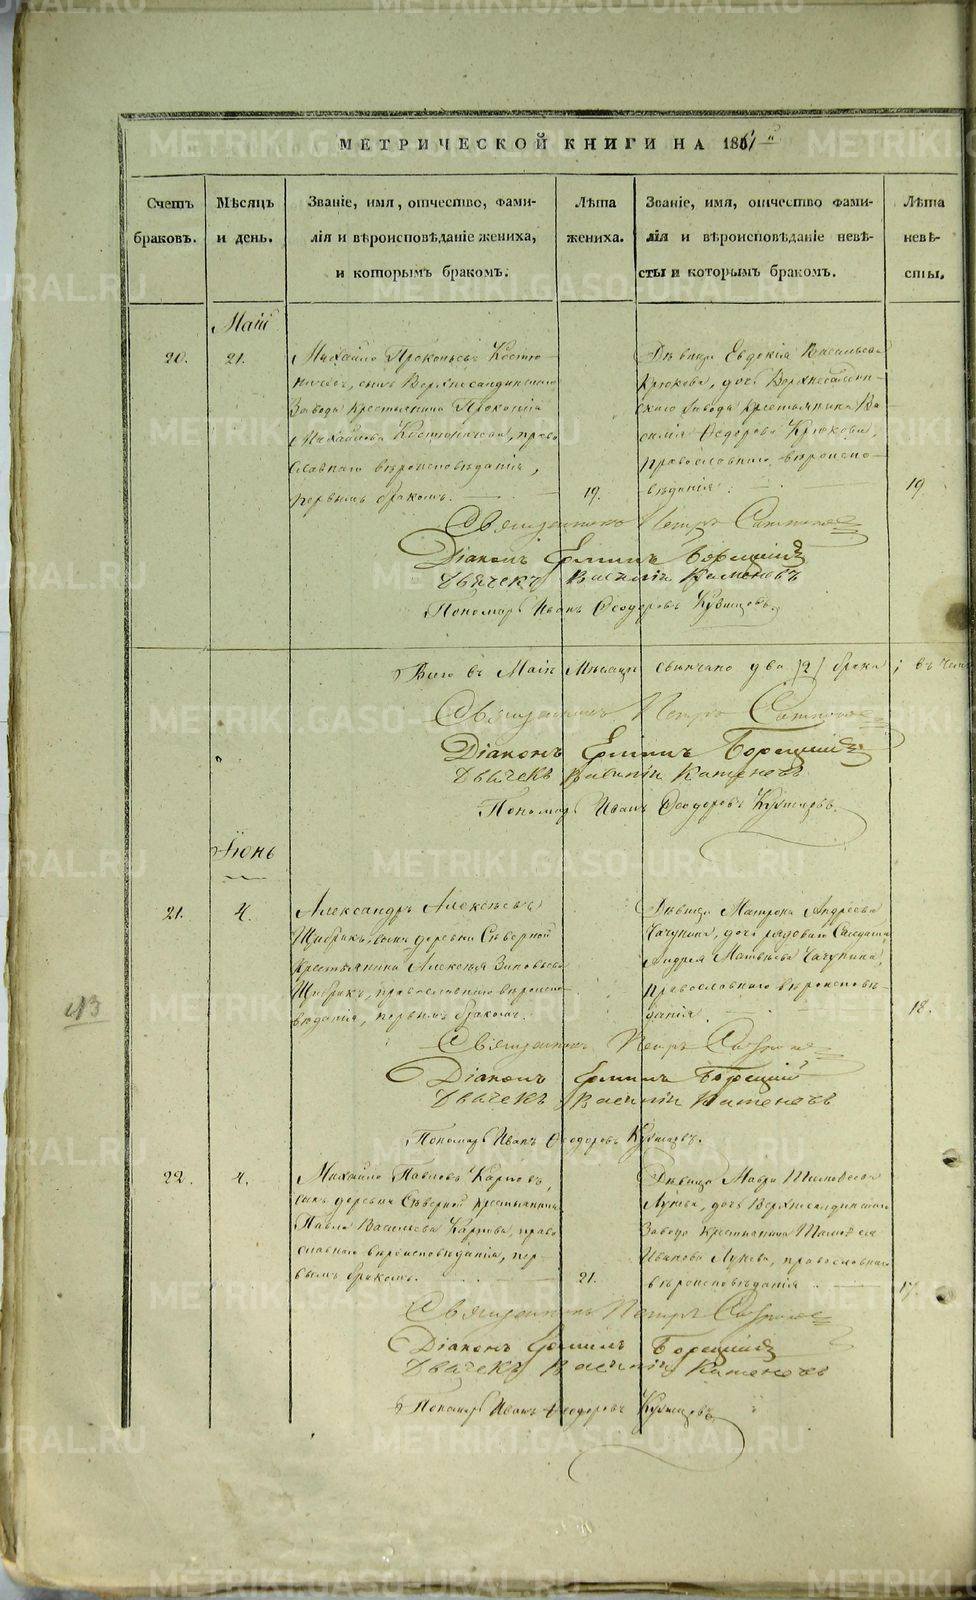 МЕТРИЧЕСКОЙ КНИГИ НА 1861 й
Счетъ браковъ.
Мѣсяцъ и день.
Званіе, имя, отчество, фами-
лія и вѣроисповѣданіе жениха,
и которымъ бракомъ.
Лѣта жениха.
Званіе, имя, отчество фами-
лія и вѣроисповѣданіе невѣ-
сты и которымъ бракомъ.
Лѣта невѣ-
сты.
Маій
20.
21.
Михайло Прокопьевъ
сынъ Верхнесалдинскаго
Завода Крестьянина Прокопія
Михайлова православнаго вѣроисповѣданія,
первымъ бракомъ.
19.
Дѣвица Евдокія Васильева
Крюкова, дочь
скаго завода Крестьянина Ва
силія Ѳедорова Крюкова,
православнаго вѣроиспо-
вѣданія.
19
Священникъ Петръ
Діаконъ Ермилъ Борецкій
Дьячекъ Василій Каменевъ
Пономарь Иванъ Ѳеодоровъ Кузнецовъ.
Всего въ Маіѣ Мѣсяцѣ свѣнчано два /2/ брака;
Священникъ Петръ
Діаконъ Ермилъ Борецкій
Дьячекъ Василій Каменевъ
Пономарь Иванъ Ѳеодоровъ Кузнецовъ.
Іюнь
21.
4.
Александръ Алексѣевъ
сынъ деревни Сѣверной
Крестьянина Алексѣя Зиновьева
православнаго вѣроиспо-
вѣданія, первымъ бракомъ.
Дѣвица Матрона Андреева
Чачунина, дочь рядоваго Солдата
Андрея Матвѣева Чачунина,
православнаго вѣроисповѣ-
данія.
18.
Священникъ Петръ
Діаконъ Ермилъ Борецкій
Дьячекъ Василій Каменевъ
Пономарь Иванъ Ѳеодоровъ Кузнецовъ.
22.
4.
Михайло Павловъ Карповъ,
сынъ деревни Сѣверной Крестьянина
Павла Васильева Карпова, право
славнаго вѣроисповѣданія, пер-
вымъ бракомъ.
21.
Дѣвица Мавра Тимоѳеева
Лукова, дочь Верхнесалдинскаго
Завода Крестьянина Тимоѳея
Иванова Лукова, православнаго
вѣроисповѣданія
17.
Священникъ Петръ
Діаконъ Ермилъ Борецкій
Дьячекъ Василій Каменевъ
Пономарь Иванъ Ѳеодоровъ Кузнецовъ
METRIKI.GASO-URAL.RU